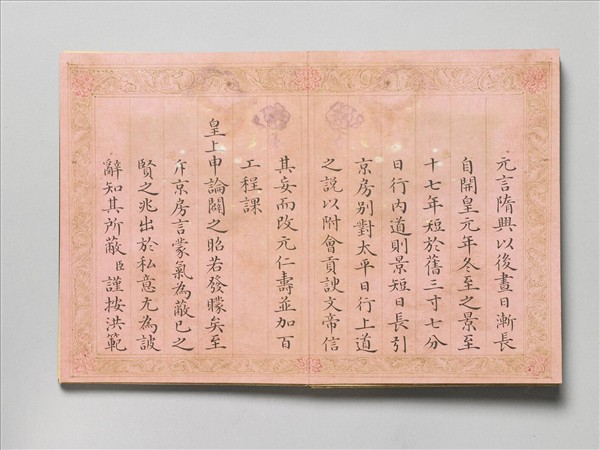 元言隋興以後晝日漸長
自開皇元年冬至之景至
十七年短於舊三寸七分
日行內道則景短日長引
京房別對太平日行上道
之說以附會貢諛文帝信
其妄而改元仁壽並加百
工程課
皇上申論闢之昭若發矇矣至
斥京房言蒙氣為蔽已之
賢之兆出於私意尤為詖
辭知其所蔽臣謹按洪範